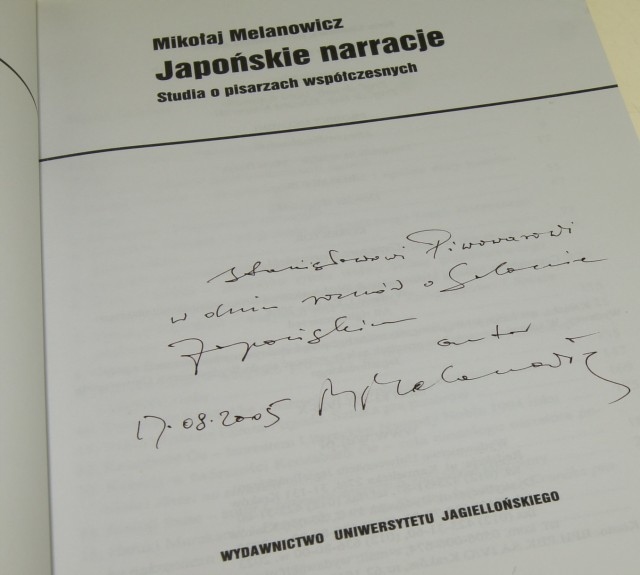 Mikołaj Melanowicz
Japońskie narracje
Studia o pisarzach współczesnych
Stanisławowi Piwowarowi
w dniu rozmów o Salonie
Japońskim
autor
17.08.2005 MMelanowicz
WYDAWNICTWO UNIWERSYTETU JAGIELLOŃSKIEGO